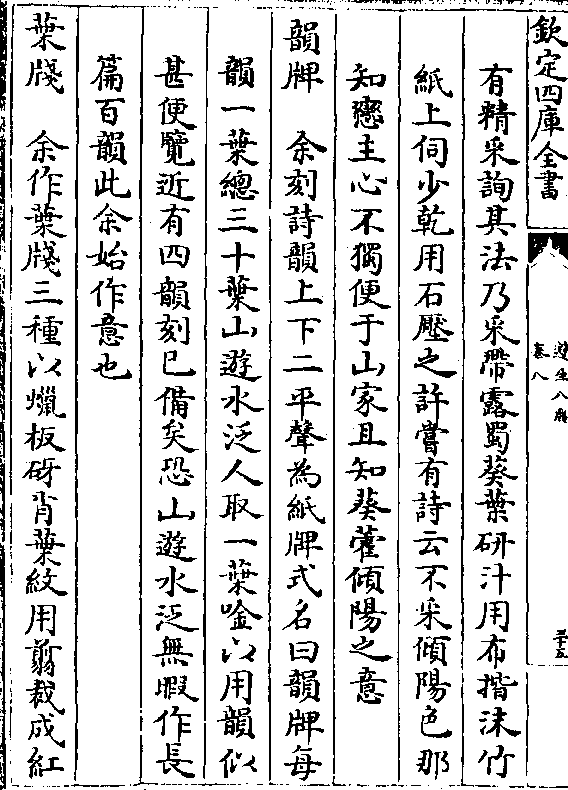 欽定四庫全書
遵生八牋
卷八
三十五
有精采詢其法乃采帶露蜀葵葉研汁用布揩沫竹
紙上伺少乾用石壓之許嘗有詩云不采傾陽色那
知戀主心不獨便于山家且知葵藿傾陽之意
韻牌　余刻詩韻上下二平聲為紙牌式名曰韻牌每
韻一葉總三十葉山遊水泛人取一葉唫以用韻似
甚便覽近有四韻刻已備矣恐山遊水泛無暇作長
篇百韻此余始作意也
葉牋　余作葉牋三種以蠟板砑肖葉紋用剪裁成紅